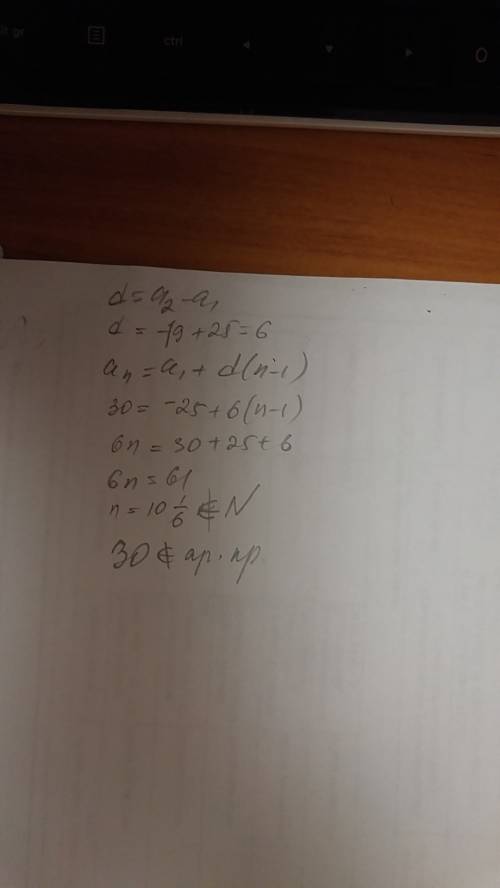 lt gr
ctrl
d = a₂ - a₁
d = -19 + 25 = 6
aₙ = a₁ + d(n-1)
30 = -25 + 6(n-1)
6n = 30 + 25 + 6
6n = 61
n = 10 1/6 ∉ N
30 ∉ ар. пр.